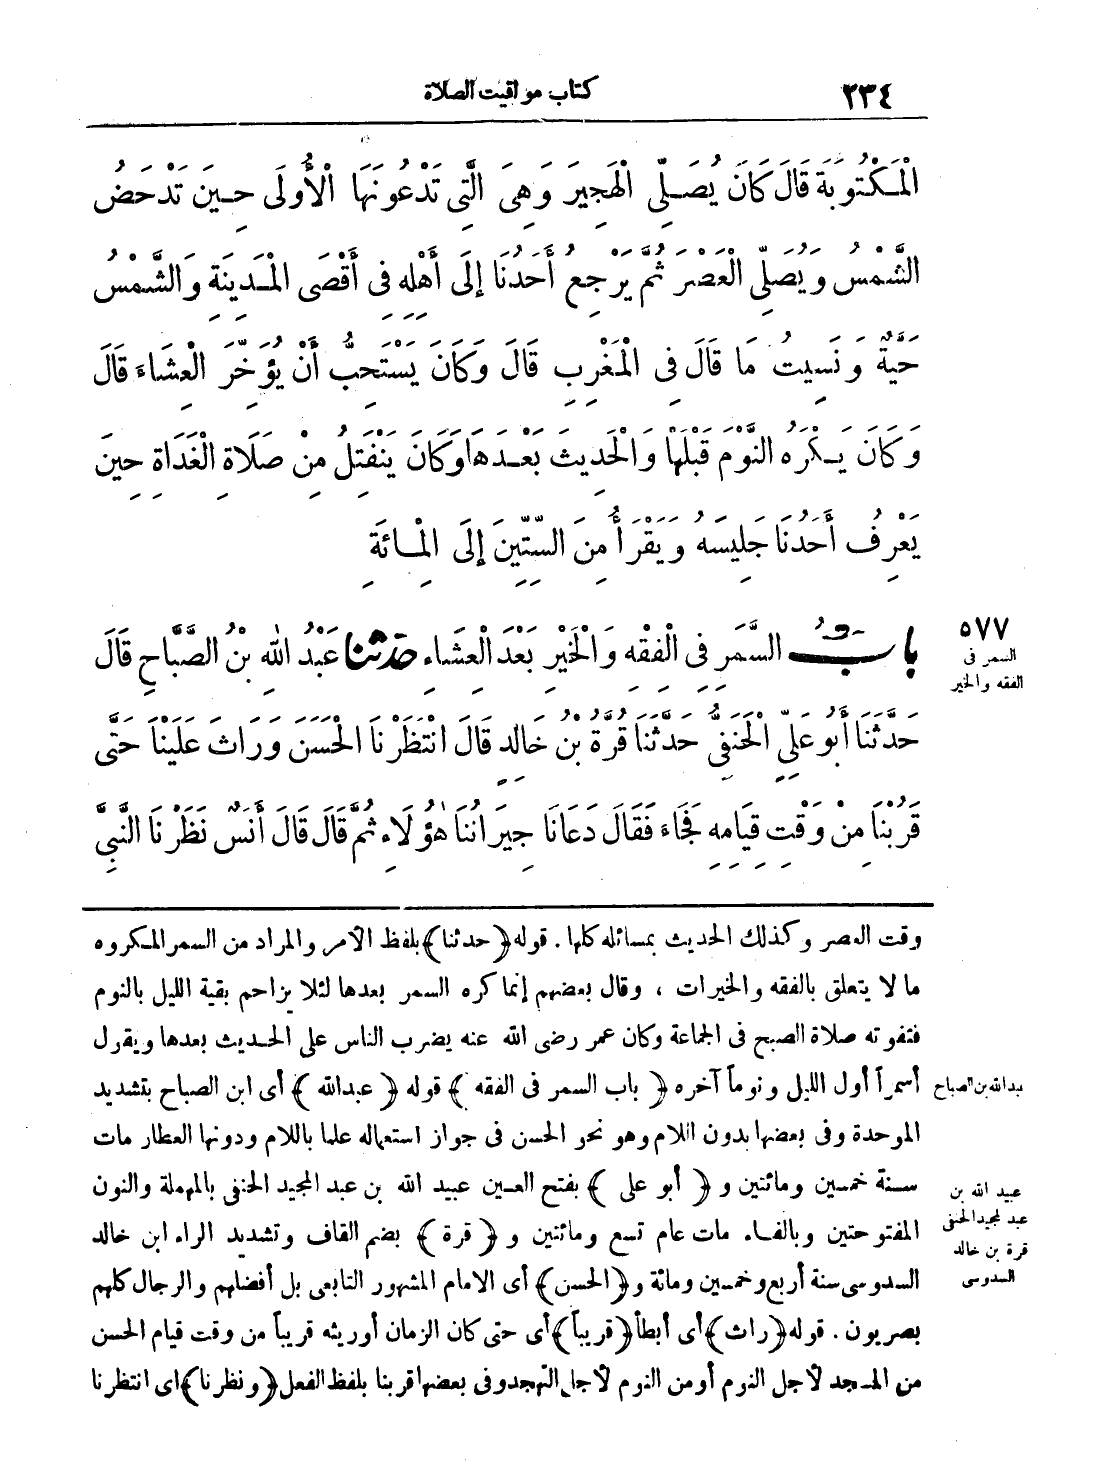 ٢٣٤
كتاب مواقيت الصلاة
الْمَكْتُوبَةَ قَالَ كَانَ يُصَلِّي الْهَجِيرَ وَهِيَ الَّتِي تَدْعُونَهَا الْأُولَى حِينَ تَدْحَضُ
الشَّمْسُ وَيُصَلِّي الْعَصْرَ ثُمَّ يَرْجِعُ أَحَدُنَا إِلَى أَهْلِهِ فِي أَقْصَى الْمَدِينَةِ وَالشَّمْسُ
حَيَّةٌ وَنَسِيتُ مَا قَالَ فِي الْمَغْرِبِ قَالَ وَكَانَ يَسْتَحِبُّ أَنْ يُؤَخِّرَ الْعِشَاءَ قَالَ
وَكَانَ يَكْرَهُ النَّوْمَ قَبْلَهَا وَالْحَدِيثَ بَعْدَهَا وَكَانَ يَنْفَتِلُ مِنْ صَلَاةِ الْغَدَاةِ حِينَ
يَعْرِفُ أَحَدُنَا جَلِيسَهُ وَيَقْرَأُ مِنَ السِّتِّينَ إِلَى الْمِائَةِ
بَابُ السَّمَرِ فِي الْفِقْهِ وَالْخَيْرِ بَعْدَ الْعِشَاءِ حَدَّثَنَا عَبْدُ اللهِ بْنُ الصَّبَّاحِ قَالَ
٥٧٧
السمر فى
الفقه والخير
حَدَّثَنَا أَبُو عَلِيٍّ الْحَنَفِيُّ حَدَّثَنَا قُرَّةُ بْنُ خَالِدٍ قَالَ انْتَظَرْنَا الْحَسَنَ وَرَاثَ عَلَيْنَا حَتَّى
قَرُبْنَا مِنْ وَقْتِ قِيَامِهِ فَجَاءَ فَقَالَ دَعَانَا جِيرَانُنَا هٰؤُلَاءِ ثُمَّ قَالَ قَالَ أَنَسٌ نَظَرْنَا النَّبِيَّ
وقت العصر وكذلك الحديث بمسائله كلها . قوله ﴿حدثنا﴾ بلفظ الأمر والمراد من السمر المكروه
ما لا يتعلق بالفقه والخيرات ، وقال بعضهم إنما كره السمر بعدها لئلا يزاحم بقية الليل بالنوم
فتفوته صلاة الصبح فى الجماعة وكان عمر رضى الله عنه يضرب الناس على الحديث بعدها ويقول
أسمراً أول الليل ونوماً آخره ﴿ باب السمر فى الفقه ﴾ قوله ﴿ عبدالله ﴾ أى ابن الصباح بتشديد
بدالله بن الصباح
الموحدة وفى بعضها بدون اللام وهو نحو الحسن فى جواز استعماله علما باللام ودونها العطار مات
سنة خمسين ومائتين و ﴿ أبو على ﴾ بفتح العين عبيد الله بن عبد المجيد الحنفى بالمهملة والنون
عبيد الله بن
عبد المجيد الحنفى
المفتوحتين وبالفاء مات عام تسع ومائتين و ﴿ قرة ﴾ بضم القاف وتشديد الراء ابن خالد
قرة بن خالد
السدوسى
السدوسى سنة أربع وخمسين ومائة و﴿الحسن﴾ أى الامام المشهور التابعى بل أفضلهم والرجال كلهم
بصريون . قوله ﴿راث﴾ أى أبطأ ﴿قريباً﴾ أى حتى كان الزمان أوريثه قريباً من وقت قيام الحسن
من المسجد لأجل النوم أو من النوم لأجل التهجد وفى بعضها قربنا بلفظ الفعل ﴿ونظرنا﴾ اى انتظرنا